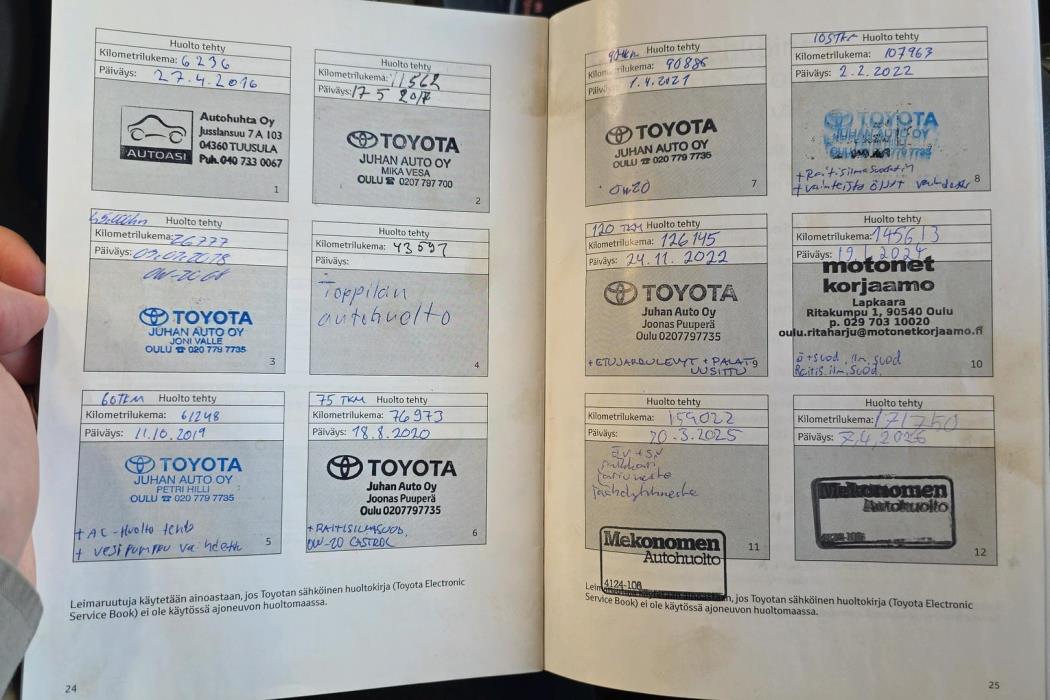 Huolto tehty
Kilometrilukema: 6236
Päiväys: 27.4.2016
AUTOASI
Autohuhta Oy
Jusslansuu 7 A 103
04360 TUUSULA
Puh. 040 733 0067
1
Huolto tehty
Kilometrilukema: 11563
Päiväys: 17 5 2017
TOYOTA
JUHAN AUTO OY
MIKA VESA
OULU ☎ 0207 797 700
2
Huolto tehty
Kilometrilukema: 26777
Päiväys: 09.02.2018
0W-20
TOYOTA
JUHAN AUTO OY
JONI VALLE
OULU ☎ 020 779 7735
3
Huolto tehty
Kilometrilukema: 43597
Päiväys:
Toppilan
autohuolto
4
60TKM Huolto tehty
Kilometrilukema: 61248
Päiväys: 11.10.2019
TOYOTA
JUHAN AUTO OY
PETRI HILLI
OULU ☎ 020 779 7735
+ AC-Huolto tehty
+ vesipumppu vaihdettu
5
75 TKM Huolto tehty
Kilometrilukema: 76973
Päiväys: 18.8.2020
TOYOTA
Juhan Auto Oy
Joonas Puuperä
Oulu 0207797735
+RAITISILMASUOD.
0W-20 CASTROL
6
Leimaruutuja käytetään ainoastaan, jos Toyotan sähköinen huoltokirja (Toyota Electronic
Service Book) ei ole käytössä ajoneuvon huoltomaassa.
24
90tkm Huolto tehty
Kilometrilukema: 90886
Päiväys: 1.4.2021
TOYOTA
JUHAN AUTO OY
OULU ☎ 020 779 7735
0W20
7
105TKM Huolto tehty
Kilometrilukema: 107963
Päiväys: 2.2.2022
TOYOTA
JUHAN AUTO OY
+ Raitisilmasuodatin
+ vaihteisto öljyt vaihdettu
8
120 TKM Huolto tehty
Kilometrilukema: 126145
Päiväys: 24.11.2022
TOYOTA
Juhan Auto Oy
Joonas Puuperä
Oulu 0207797735
+ETUJARRULEVYT + PALAT
UUSITTU
9
Huolto tehty
Kilometrilukema: 145613
Päiväys: 19.1.2024
motonet
korjaamo
Lapkaara
Ritakumpu 1, 90540 Oulu
p. 029 703 10020
oulu.ritaharju@motonetkorjaamo.fi
ö+suod, ilm.suod
Raitis.ilm.suod.
10
Huolto tehty
Kilometrilukema: 159022
Päiväys: 20.3.2025
jarruneste
jäähdytinneste
Mekonomen
Autohuolto
4124-106
11
Huolto tehty
Kilometrilukema: 171750
Päiväys: 7.4.2026
Mekonomen
Autohuolto
12
Leimaruutuja käytetään ainoastaan, jos Toyotan sähköinen huoltokirja (Toyota Electronic
Service Book) ei ole käytössä ajoneuvon huoltomaassa.
25